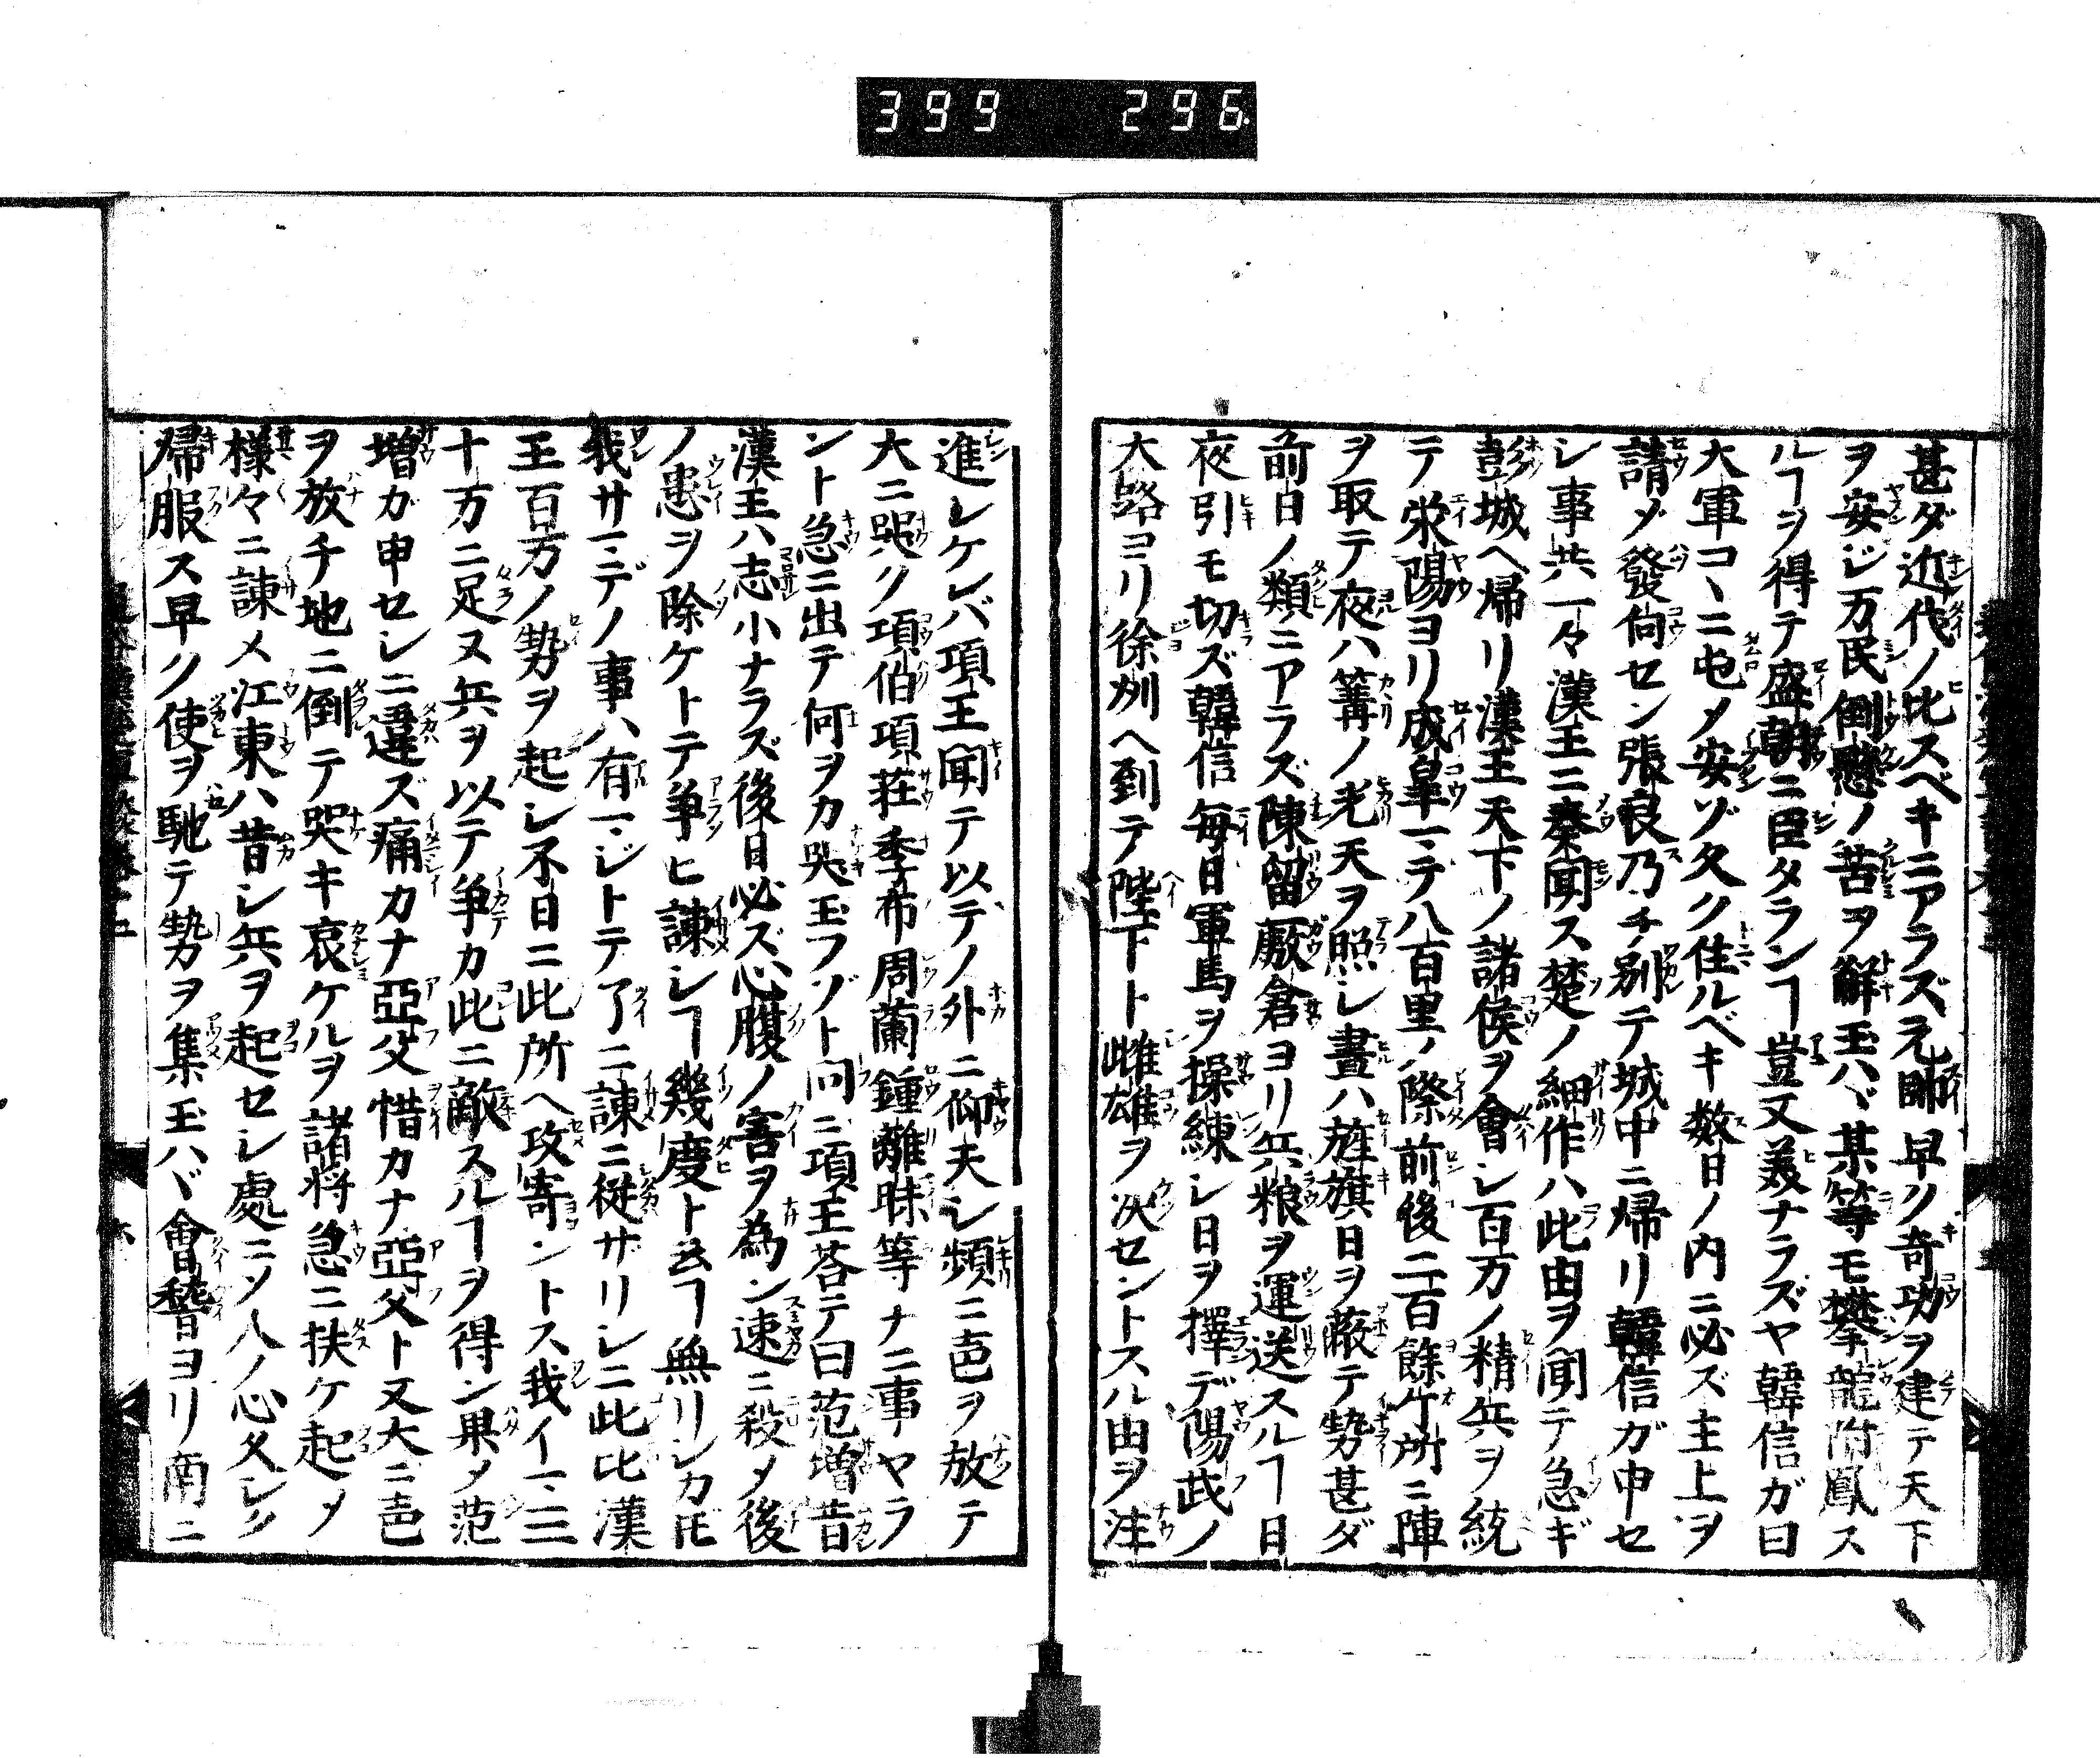 399 296
甚ダ近代ノ比スベキニアラズ元帥早ク奇功ヲ建テ天下
ヲ安ジ万民倒懸ノ苦ヲ解玉ハヾ某等モ攀龍附鳳ス
ルヿヲ得テ盛朝ニ臣タランヿ豈又美ナラズヤ韓信ガ曰
大軍コヽニ屯メ安ゾ久ク住ルベキ数日ノ内ニ必ズ主上ヲ
請メ發向セン張良乃チ別テ城中ニ帰リ韓信ガ申セ
シ事共一々漢王ニ奏聞ス楚ノ細作ハ此由ヲ聞テ急ギ
彭城ヘ帰リ漢王天下ノ諸侯ヲ會シ百万ノ精兵ヲ統
テ滎陽ヨリ成皐マテ八百里ノ際前後二百餘ケ所ニ陣
ヲ取テ夜ハ篝ノ光天ヲ照シ晝ハ旌旗日ヲ蔽テ勢甚ダ
前日ノ類ニアラズ陳留敖倉ヨリ兵粮ヲ運送スルヿ日
夜引モ切ズ韓信毎日軍馬ヲ操練シ日ヲ擇デ陽武ノ
大路ヨリ徐州ヘ到テ陛下ト雌雄ヲ决セントスル由ヲ注
進シケレバ項王聞テ以テノ外ニ仰天シ頻ニ声ヲ放テ
大ニ哭ク項伯項荘季布周蘭鍾離昧等ナニ事ヤラ
ント急ニ出テ何ヲカ哭玉フゾト问ニ項王荅テ曰范増昔
漢王ハ志小ナラズ後日必ズ心腹ノ害ヲ為ン速ニ殺メ後
ノ患ヲ除ケトテ争ヒ諌シヿ幾度ト云ヿ無リシカ𪜈
我サマデノ事ハ有マジトテ了ニ諌ニ従サリシニ此比漢
王百万ノ勢ヲ起シ不日ニ此所ヘ攻寄ントス我イマ三
十万ニ足ヌ兵ヲ以テ争カ此ニ敵スルヿヲ得ン果メ范
増ガ申セシニ違ズ痛カナ亞父惜カナ亞父ト又大ニ声
ヲ放チ地ニ倒テ哭キ哀ケルヲ諸将急ニ扶ケ起メ
様々ニ諌メ江東ハ昔シ兵ヲ起セシ處ニメ人ノ心久シク
帰服ス早ク使ヲ馳テ勢ヲ集玉ハヾ會稽ヨリ南ニ